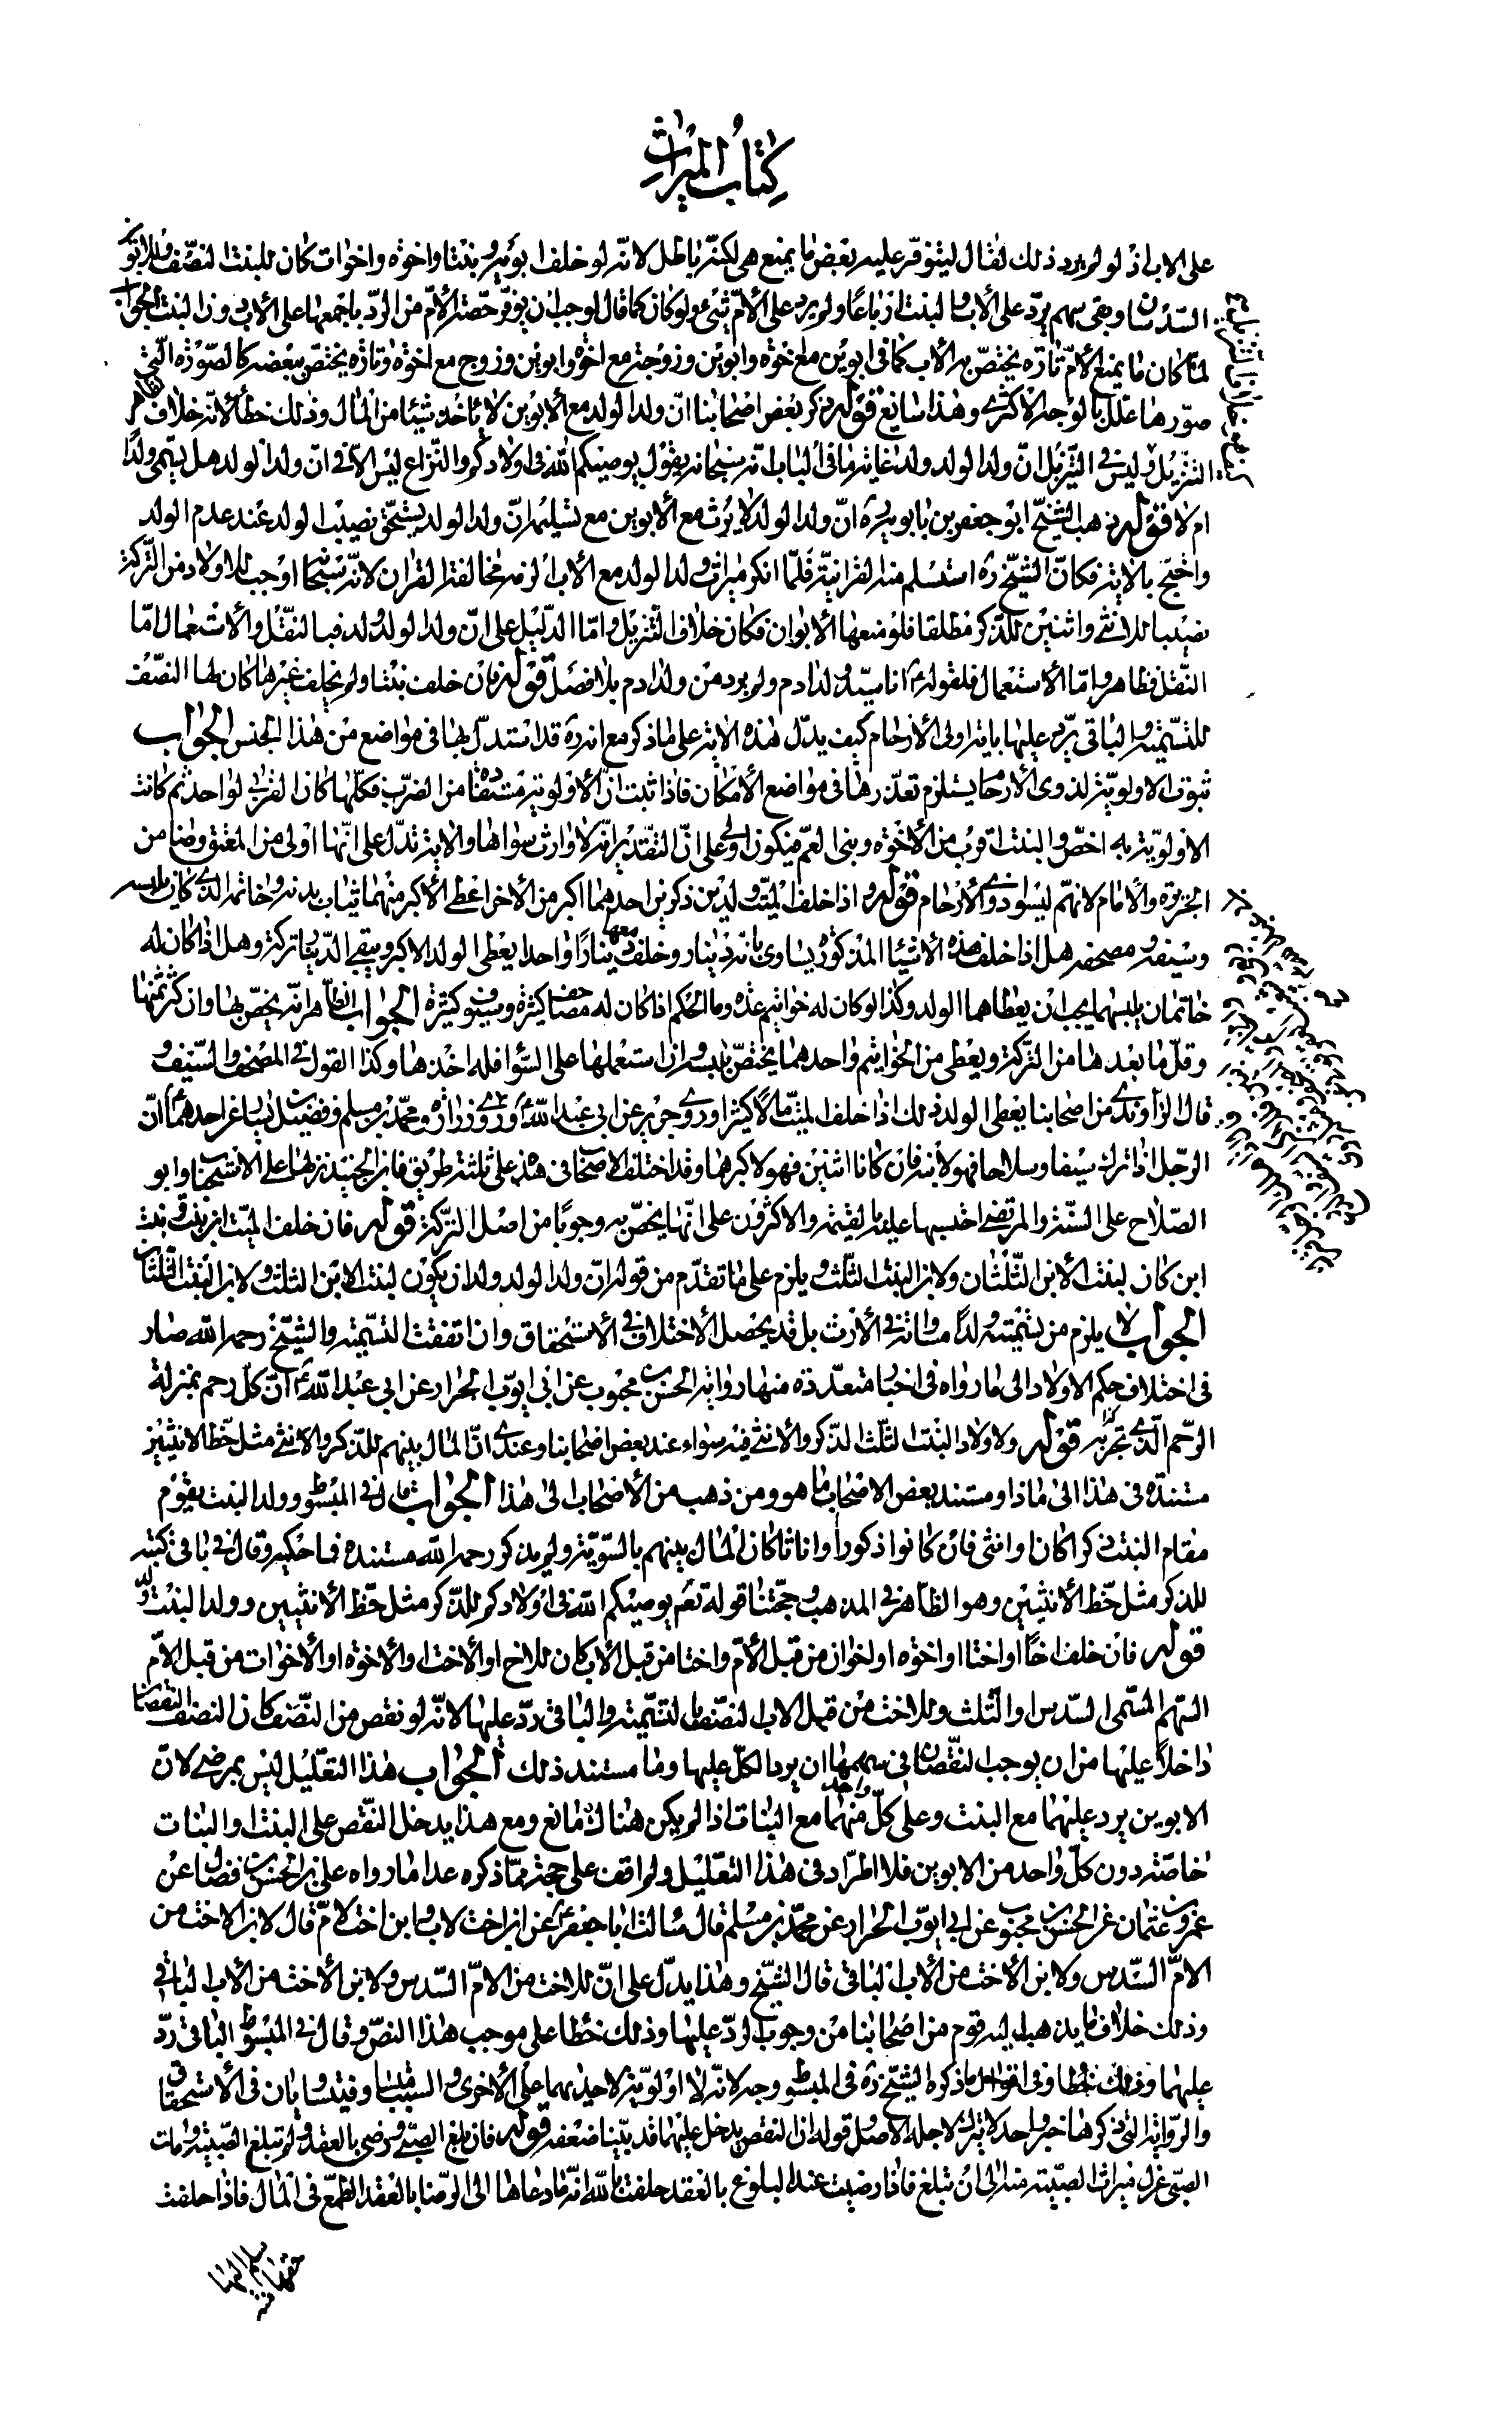 كتاب الميراث
على الاب اذ لو لم يرد ذلك لقال ليتوفر عليه بعض ما يمنع هي لكنّه باطل لانّه لو خلف ابويه وبنتا واخوة واخوات كان للبنت النصف وللابوين
السدسان وبقى سهم يردّ على الاب والبنت ارباعًا ولم يرد على الأمّ شئ ولو كان كما قال لوجب ان يوفر حصّة الأمّ من الردّ باجمعها على الأب دون البنت الجواب
لما كان ما يمنع الأمّ تارة يختصّ به الأب كما في ابوين مع اخوة وابوين وزوجة مع اخوة وابوين وزوج مع اخوة وتارة يختصّ ببعضه كالصورة التي
صوّرها علّل بالوجه الاكثرى وهذا سايغ قوله ذكر بعض اصحابنا انّ ولد الولد مع الأبوين لا يأخذ شيئا من المال وذلك خطأ لانّه خلاف ظاهر
التنزيل وليس في التنزيل انّ ولد الولد ولد غاية ما في الباب انّه سبحانه يقول يوصيكم الله في اولادكم والنزاع ليس الّا في انّ ولد الولد هل يسمى ولدًا
ام لا قوله ذهب الشيخ ابو جعفر بن بابويه ره انّ ولد الولد لا يرث مع الأبوين مع تسليمه انّ ولد الولد يستحق نصيب الولد عند عدم الولد
واحتج بالاية فكانّ الشيخ ره استسلم منه القرانية فلمّا انكر ميراث ولد الولد مع الأب الزمه مخالفة القران لانّه سبحانه اوجب للاولاد من التركة
نصيبا للانثى واثنين للذكر مطلقا فلو منعها الابوان فكان خلاف التنزيل وامّا الدليل على انّ ولد الولد ولد فبالنقل والأستعمال امّا
النّقل فظاهر وامّا الأستعمال فلقوله ع انا سيّد ولد ادم ولم يرد من ولد ادم بلا فصل قوله فان خلف بنتا ولم يخلف غيرها كان لها النصف
للتسمية والباقى يردّ عليها باية اولى الأرحام كيف يدلّ هذه الاية على ما ذكر مع انه ره قد استدل بها في مواضع من هذا الجنس الجواب
ثبوت الاولويّة لذوى الأرحام يستلزم تعدّدها في مواضع الأمكان فاذا ثبت انّ الأولوية مستفادة من القرب فكلّما كان القرب لواحد ثم كانت
الاولويّة به اخصّ والبنت اقرب من الأخوة وبنى العمّ فيكون اولى على انّ التقدير انّه لا وارث سواها والاية تدلّ على انّها اولى من المعتق وضامن
الجريرة والأمام لانهم ليسوا ذوى الأرحام قوله واذا خلف الميّت ولدين ذكرين احدهما اكبر من الأخر اعطى الأكبر منهما ثياب بدنه وخاتمه الذي كان يلبسه
وسيفه ومصحفه هل اذا خلف هذه الأشياء المذكورة يساوى مائة دينار وخلف معها دينارًا واحدا يعطى الولد الاكبر ويبقى الدينار تركة وهل اذا كان له
خاتمان يلبسهما يجب ان يعطاهما الولد وكذا لو كان له خواتيم عدّة وما الحكم اذا كان له مصاحف كثيرة وسيوف كثيرة الجواب الظاهر انّه يخصّ بها وان كثر ثمنها
وقلّ ما بعدها من التركة ويعطى من الخواتيم واحد هما يختصّ بلبسه وان استعملها على السواء فله اخذها وكذا القول في المصحف والسّيف و
قال الراوندى من اصحابنا يعطى الولد ذلك اذا خلف الميّت مالًا كثيرا وروى حريز عن ابي عبد الله ع وروى زرارة ومحمّد بن مسلم وفضيل بن يسار عن احدهما انّ
الرجل اذا ترك سيفا وسلاحا فهو لابنه فان كانا اثنين فهو لاكبرهما وقد اختلف الاصحاب في هذه على ثلثة طريق فابن الجنيد نزلها على الاستحباب وابو
الصّلاح على السنّة والمرتضى احتسبها عليه بالقيمة والاكثرون على انّها يخصّ به وجوبًا من اصل التركة قوله فان خلف الميّت ابن بنت وبنت
ابن كان لبنت الأبن الثّلثان ولابن البنت الثّلث ويلزم على ما تقدّم من قوله انّ ولد الولد ولد ان يكون لبنت الابن الثلث ولابن البنت الثلثان
الجواب لا يلزم من تسميته ولدًا مساواته في الأرث بل قد يحصل الأختلاف في الأستحقاق وان اتفقت التسمية والشيخ رحمه الله صار
في اختلاف حكم الاولاد الى ما رواه في اخبار متعدّدة منها رواية الحسن بن محبوب عن ابي ايوّب الخزاز عن ابي عبد الله ع انّ كلّ رحم بمنزلة
الرحم الّذى تجرّ به قوله ولاولاد البنت الثلث الذكر والأنثى فيه سواء عند بعض اصحابنا وعندى انّ المال بينهم للذكر والانثى مثل حظّ الانثيين
مستنده في هذا الى ماذا ومستند بعض الاصحاب ما هو ومن ذهب من الأصحاب الى هذا الجواب قال في المبسوط وولد البنت يقوم
مقام البنت ذكرا كان او انثى فان كانوا ذكورا واناثا كان المال بينهم بالسّوية ولم يذكر رحمه الله مستنده فيما حكيه وقال في باقى كتبه
للذكر مثل حظّ الأنثيين وهو الظاهر في المذهب وحجّتنا قوله تعم يوصيكم الله في اولادكم للذّكر مثل حظّ الأنثيين وولد البنت ولد
قوله فان خلف اخًا او اختا او اخوة او اخوات من قبل الأمّ واختا من قبل الأب كان للاخ او الأخت او الأخوة او الأخوات من قبل الأمّ
السّهم المسمى السّدس او الثّلث وللاخت من قبل الاب النّصف بالتسمية والباقى ردّ عليها لانّه لو نقص من النّصف كان النقصان
داخلًا عليها من ان يوجب النّقصان في سهمها ان يرد الكلّ عليها وما مستند ذلك الجواب هذا التعليل ليس بمرضى لانّ
الابوين يرد عليهما مع البنت وعلى كلّ واحد منهما مع البنات اذا لم يكن هناك مانع ومع هذا يدخل النّقص على البنت والبنات
خاصّة دون كلّ واحد من الابوين فلا اطّراد في هذا التعليل ولم اقف على حجة ممّا ذكره عدا ما رواه علي بن الحسن بن فضّال عن
عمرو بن عثمان عن الحسن بن محبوب عن ابي ايوّب الخزاز عن محمّد بن مسلم قال سالت ابا جعفر ع عن ابن اخت لاب وابن اخت لأمّ قال لابن الاخت من
الامّ السّدس ولابن الأخت من الأب الباقى قال الشيخ وهذا يدلّ على انّ للاخت من الامّ السّدس ولابن الأخت من الأب الباقى
وذلك خلاف ما يذهب اليه قوم من اصحابنا من وجوب الردّ عليهما وذلك خطأ على موجب هذا النصّ وقال في المبسوط الباقى ردّ
عليهما وذلك خطا وفى اقوال ما ذكره الشيخ ره في المبسوط وجه لانّه لا اولويّة لاحديهما على الأخرى والسببان متساويان فيتساويان في الأستحقاق
والرّواية التي ذكرها خبر واحد لا يترك لاجله الاصل قوله انّ النقص يدخل عليهما قد بيّنا ضعفه قوله فان بلغ الصبى ورضى بالعقد ولم تبلغ الصبيّة ومات
الصبّى عزل ميراث الصبيّة منه الى ان تبلغ فاذا رضيت عند البلوغ بالعقد حلفت بالله انّه ما دعاها الى الرضا بالعقد الطمع في المال فاذا حلفت